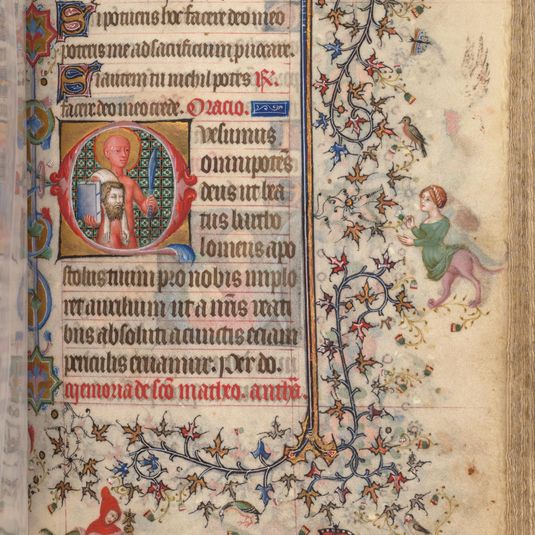 Si potueris hoc facere deo meo
poteris me ad sacrificium provocare.
Si autem tu nichil potes R̃.
facere deo meo crede. Oracio.
Quesumus
omnipotẽs
deus ut bea
tus bartho
lomeus apo
stolus tuum pro nobis implo
ret auxilium ut a nr̃is reati
bus absoluti a cunctis eciam
periculis eruamur. Per do.
Memoria de sc̃o matheo. antha.